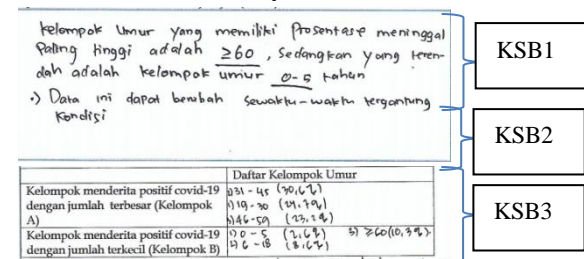 kelompok umur yang memiliki prosentase meninggal
paling tinggi adalah ≥60, sedangkan yang teren-
dah adalah kelompok umur 0-5 tahun
•) Data ini dapat berubah sewaktu-waktu tergantung
kondisi
KSB1
KSB2
KSB3
Daftar Kelompok Umur
Kelompok menderita positif covid-19
dengan jumlah terbesar (Kelompok
A)
31 - 45 (30,6%)
19 - 30 (24,7%)
46 - 59 (23,2%)
Kelompok menderita positif covid-19
dengan jumlah terkecil (Kelompok B)
1) 0 - 5 (2,6%) 3) ≥60 (10,3%)
2) 6 - 18 (8,6%)